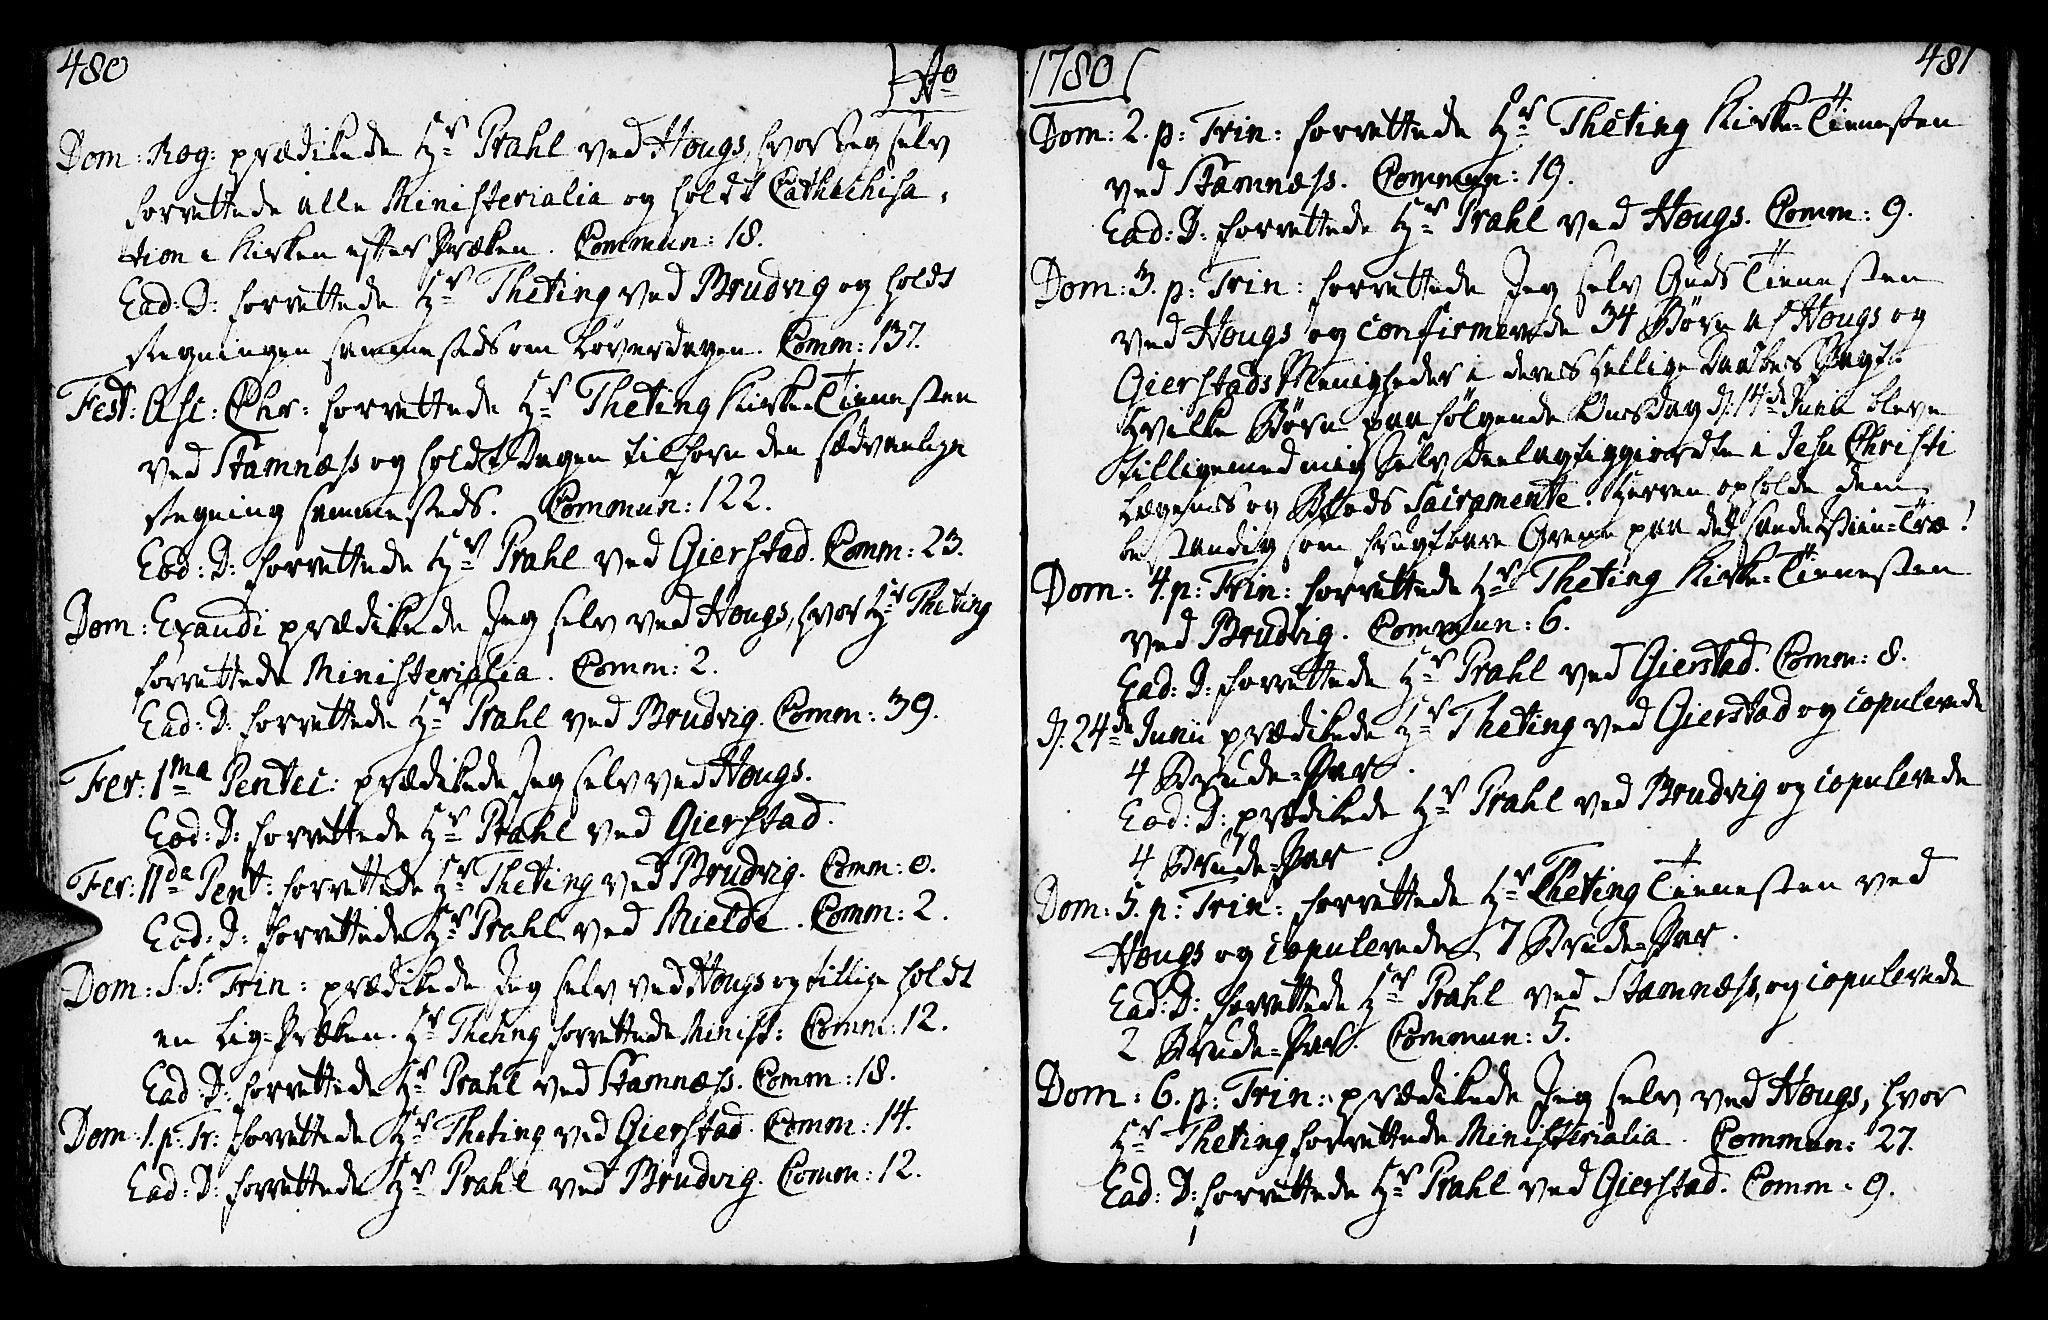 480
Ao
Dom: Rog: prædikede Hr Prahl ved Hougs, hvor Jeg selv
forrettede alle Ministerialia og holdt Cathechisa-
tion i Kirken efter Præken. Commun: 18.
Ead: D: forrettede Hr Theting ved Brudvig og holdt
Vegningen sammesteds om Løverdagen. Comm: 137.
Fest: Asc: Chr: forrettede Hr Theting Kirke-Tienesten
ved Stamnæss og holdt Dagen tilforn den sædvanlige
Vegning sammesteds. Commun: 122.
Eod: D: forrettede Hr Prahl ved Gierstad. Comm: 23.
Dom: Exaudi prædikede Jeg selv ved Hougs, hvor Hr Theting
forrettede Ministerialia. Comm: 2.
Ead: D: forrettede Hr Prahl ved Brudvig. Comm: 39.
Fer: 1ma Pentec: prædikede Jeg selv ved Hougs.
Eod: D: forrettede Hr Prahl ved Gierstad.
Fer: IIda Pent: forrettede Hr Theting ved Brudvig. Comm: 0.
Eod: D: forrettede Hr Prahl ved Mielde. Comm: 2.
Dom: S.S: Trin: prædikede Jeg selv ved Hougs og tillige holdt
en Lig-Præken. Hr Theting forrettede Minist: Comm: 12.
Ead: D: forrettede Hr Prahl ved Stamnæss. Comm: 18.
Dom: 1. p: Tr: forrettede Hr Theting ved Gierstad. Comm: 14.
Ead: D: forrettede Hr Prahl ved Brudvig. Comm: 12.
1780
481
Dom: 2. p: Trin: forrettede Hr Theting Kirke-Tienesten
ved Stamnæss. Commun: 19.
Ead: D: forrettede Hr Prahl ved Hougs. Comm: 9.
Dom: 3. p: Trin: forrettede Jeg selv Guds Tienesten
ved Hougs og confirmerede 34 Børn af Hougs og
Gierstads Menigheder i deres hellige Daabes Pagt.
Hvilke Børn paafølgende Onsdag d: 14de Junii bleve
tilligemed mig selv deelagtiggiordte i Jesu Christi
Legems og Blods Sacramente. Herren opholde dem
bestandig som frugtbare Grene paa det sande Viin-Træ!
Dom: 4. p: Trin: forrettede Hr Theting Kirke-Tienesten
ved Brudvig. Commun: 6.
Ead: D: forrettede Hr Prahl ved Gierstad. Comm: 8.
d: 24de Junii prædikede Hr Theting ved Gierstad og copulerede
4 Brude-Par.
Eod: D: prædikede Hr Prahl ved Brudvig og copulerede
4 Brude-Par.
Dom: 5. p: Trin: forrettede Hr Theting Tienesten ved
Hougs og copulerede 7 Brude-Par.
Ead: D: forrettede Hr Prahl ved Stamnæss, og copulerede
2 Brude-Par. Commun: 5.
Dom: 6. p: Trin: prædikede Jeg selv ved Hougs, hvor
Hr Theting forrettede Ministerialia. Commun: 27.
Ead: D: forrettede Hr Prahl ved Gierstad. Comm: 9.